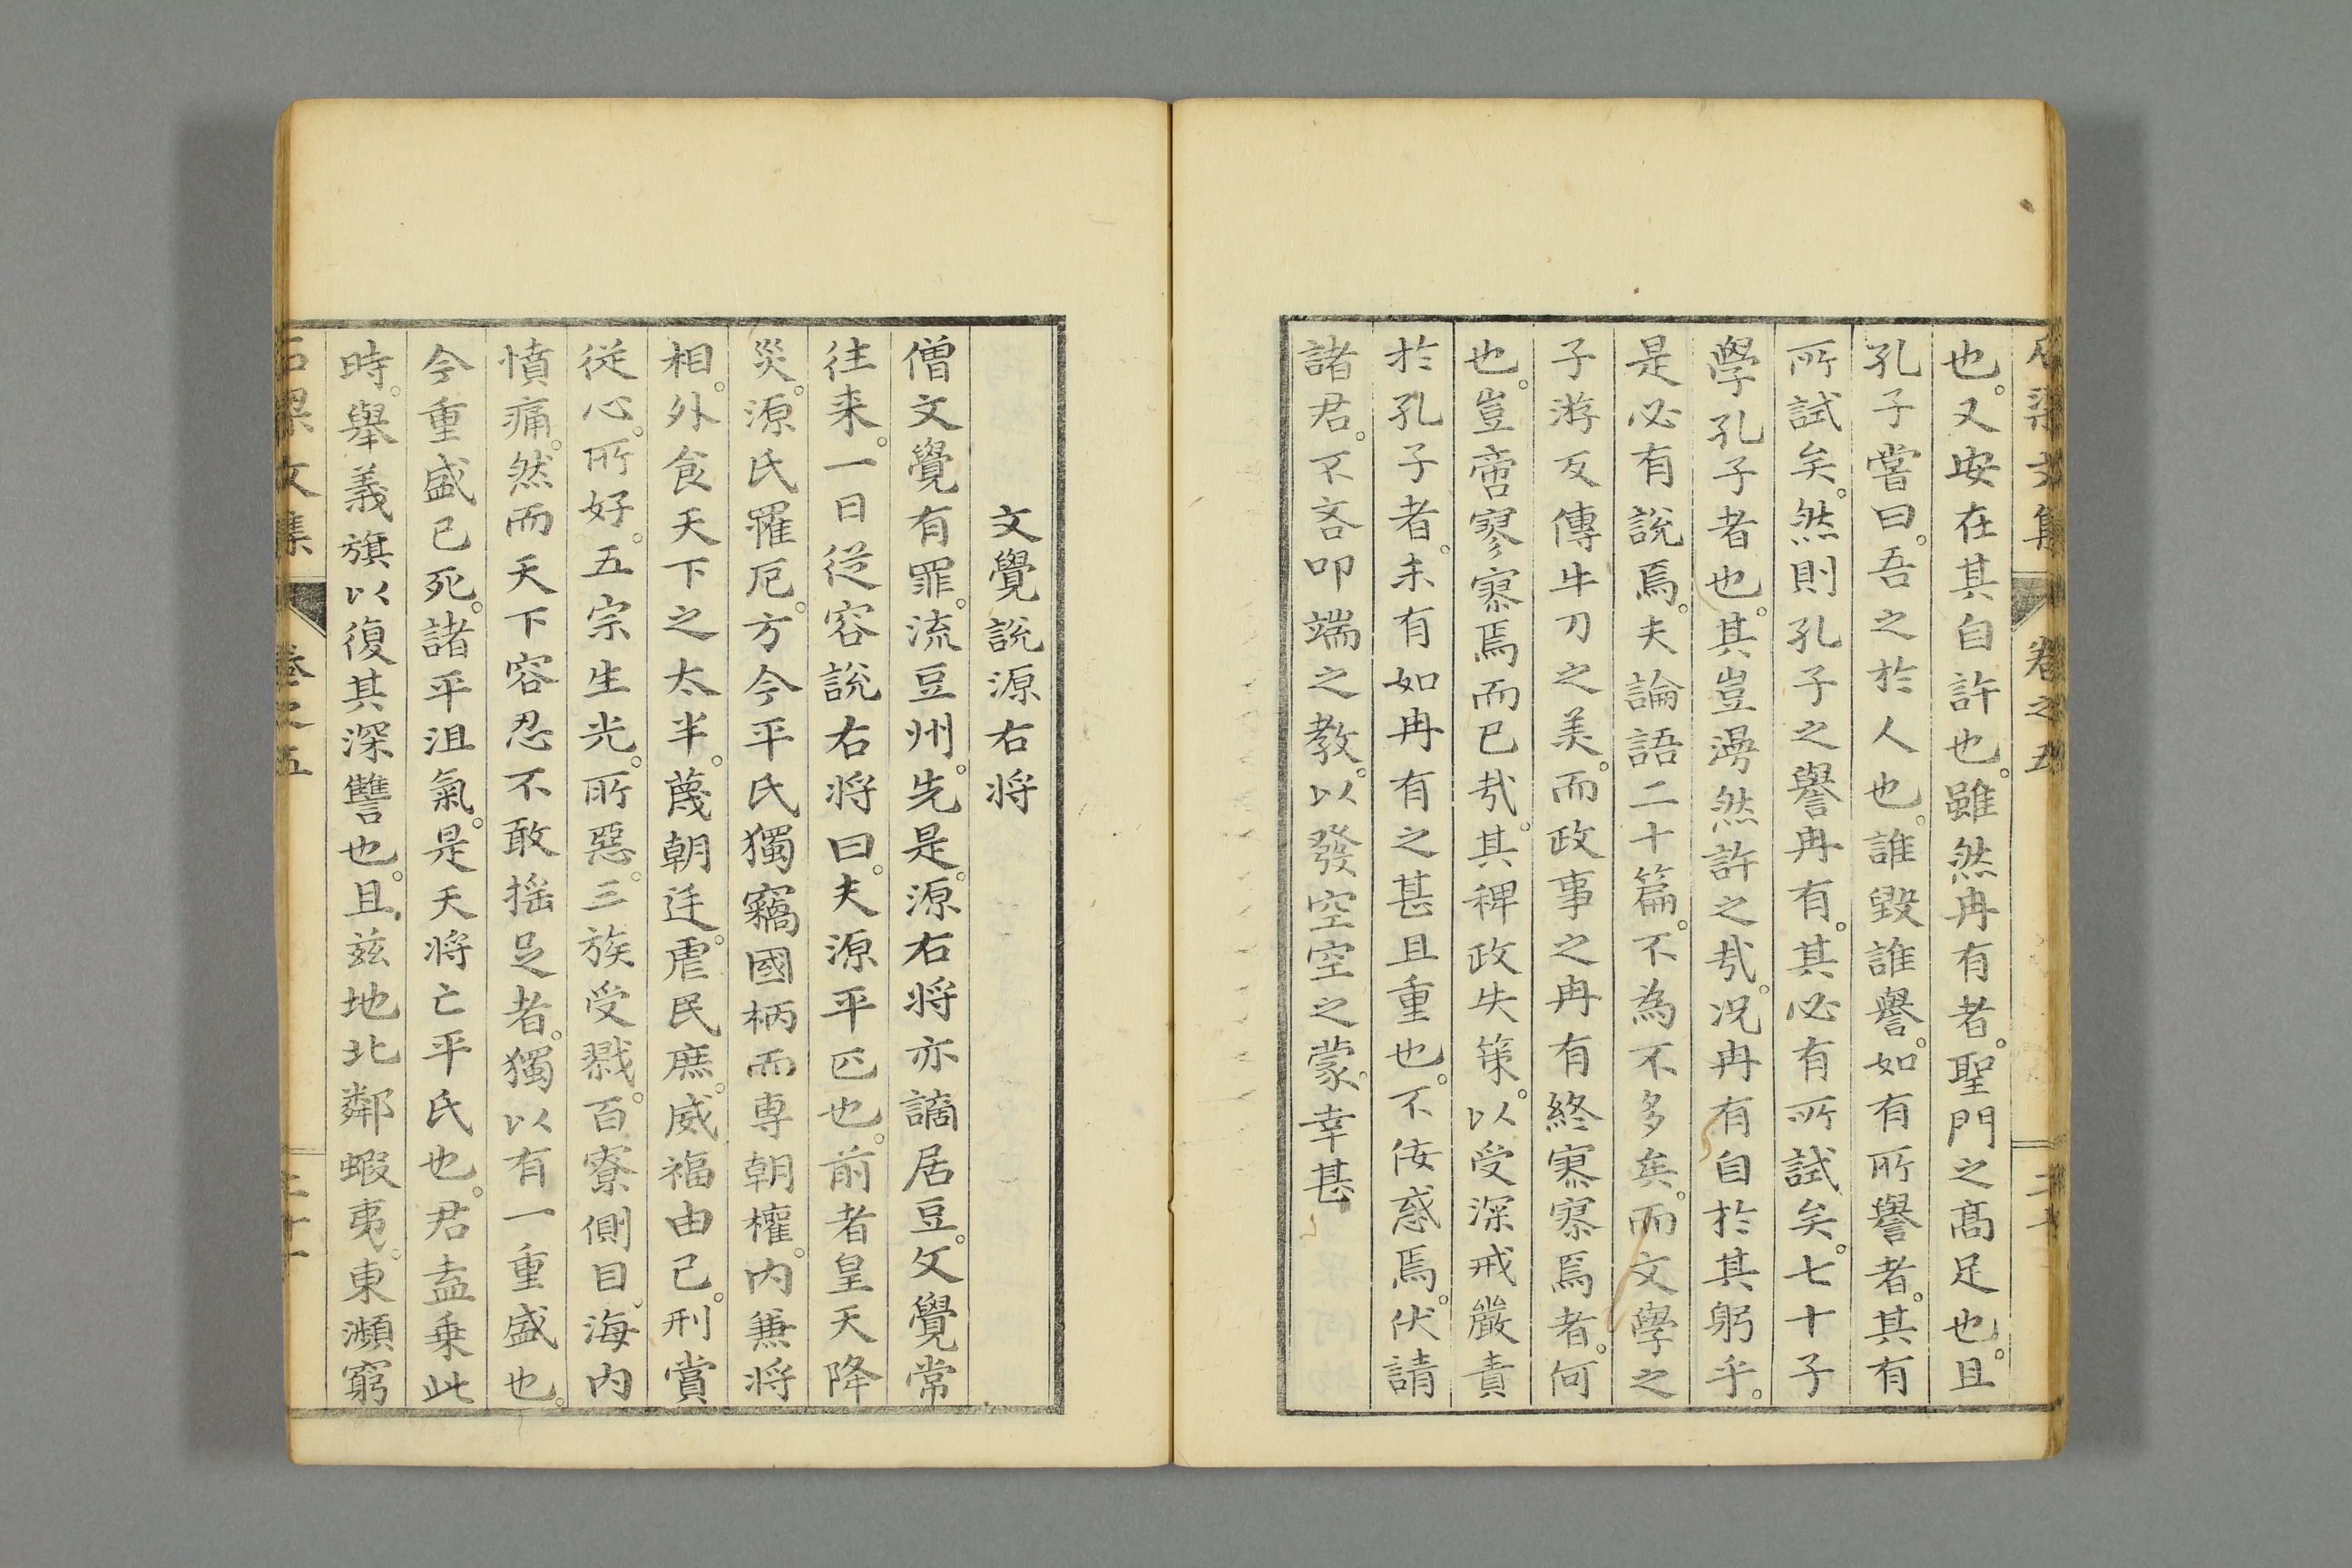 石梁文集 卷之五
也。又安在其自許也。雖然冉有者。聖門之高足也。且
孔子嘗曰。吾之於人也。誰毀誰譽。如有所譽者。其有
所試矣。然則孔子之譽冉有。其必有所試矣。七十子
學孔子者也。其豈漫然許之哉。况冉有自於其躬乎。
是必有說焉。夫論語二十篇。不為不多矣。而文學之
子游反傳牛刀之美。而政事之冉有終寥寥焉者。何
也。豈啻寥寥焉而已哉。其稗政失策。以受深戒嚴責
於孔子者。未有如冉有之甚且重也。不佞惑焉。伏請
諸君。不吝叩端之教。以發空空之蒙。幸甚
文覺說源右将
僧文覺有罪。流豆州。先是。源右将亦謫居豆。文覺常
往来。一日従容説右将曰。夫源平匹也。前者皇天降
災。源氏罹厄。方今平氏獨竊國柄而専朝權。内兼将
相。外食天下之太半。蔑朝廷。虐民庶。威福由己。刑賞
従心。所好。五宗生光。所惡。三族受戮。百寮側目。海内
憤痛。然而天下容忍不敢揺足者。獨以有一重盛也。
今重盛已死。諸平沮氣。是天将亡平氏也。君盍乗此
時。舉義旗以復其深讐也。且茲地北鄰蝦夷。東瀕窮
石梁文集 卷之五 二十一